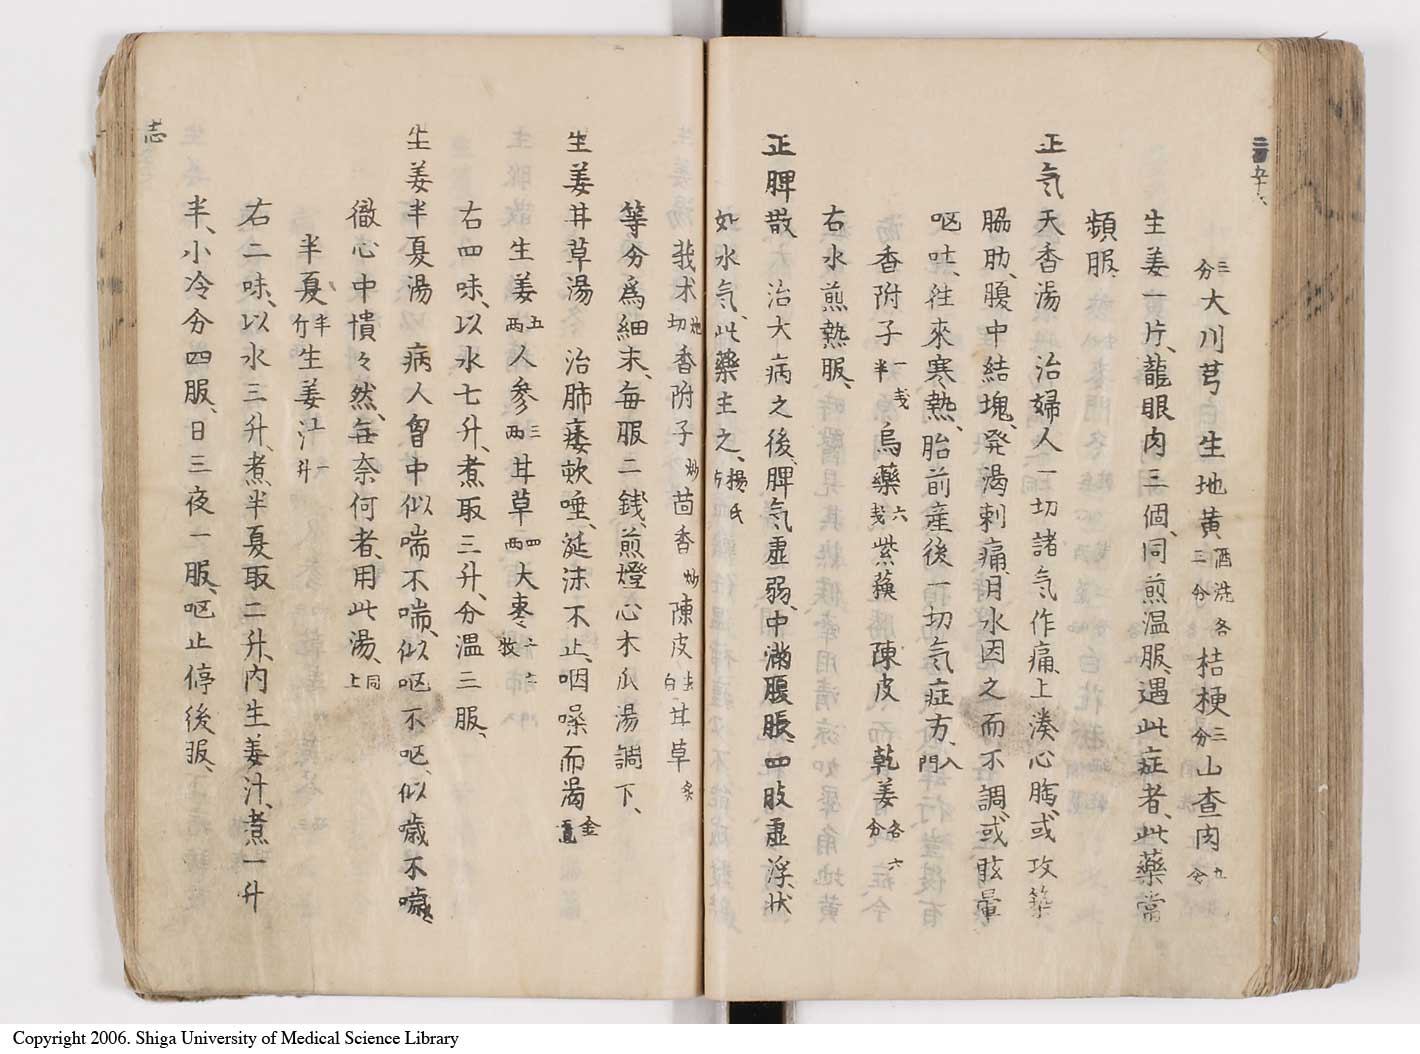 三分大川芎生地黄酒洗各三分桔梗三分山查肉九分
生姜一片、龍眼肉三個、同煎温服、遇此症者、此藥當
頻服、
正氣天香湯 治婦人一切諸氣作痛、上湊心胸、或攻築
脇肋、腹中結塊、発渇刺痛、月水因之而不調、或眩暈
呕吐、往來寒熱、胎前産後一切気症方、入門
香附子一戔半烏藥六戔紫蘓陳皮乾姜各六分
右水煎熱服、
正脾散 治大病之後、脾気虚弱、中滿腹脹、四肢虚浮、状
如水気、此藥主之、楊氏方
莪朮炮切香附子炒茴香炒陳皮去白甘草炙
等分爲細末、毎服二銭、煎燈心木瓜湯調下、
生姜甘草湯 治肺痿欬唾、涎沫不止、咽燥而渇金匱
生姜五兩人参三兩甘草四兩大棗十六枚
右四味、以水七升、煮取三升、分温三服、
生姜半夏湯 病人胷中似喘不喘、似呕不呕、似噦不噦、
徹心中憒々然、無奈何者、用此湯、同上
半夏半斤生姜汁一升
右二味、以水三升、煮半夏取二升、内生姜汁、煮一升
半、小冷分四服、日三夜一服、呕止停後服、
志